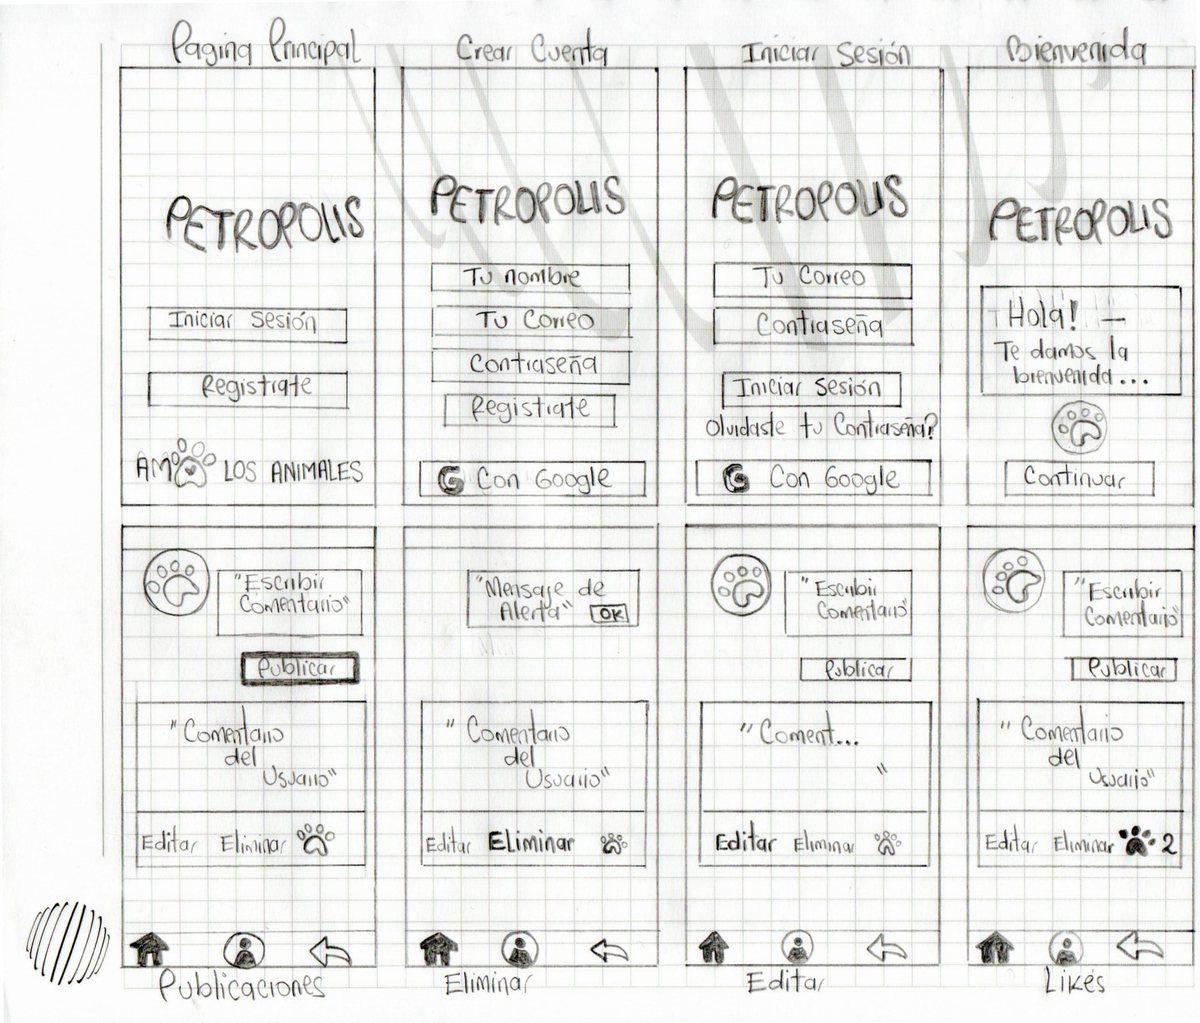 Pagina Principal
Crear Cuenta
Iniciar Sesión
Bienvenida
PETROPOLIS
Iniciar Sesión
Registrate
AMO LOS ANIMALES
PETROPOLIS
Tu nombre
Tu Correo
Contraseña
Registrate
G Con Google
PETROPOLIS
Tu Correo
Contraseña
Iniciar Sesión
Olvidaste tu Contraseña?
G Con Google
PETROPOLIS
¡Hola! —
Te damos la
bienvenida...
Continuar
"Escribir
Comentario"
Publicar
"Comentario
del
Usuario"
Editar Eliminar
Publicaciones
"Mensaje de
Alerta" OK
"Comentario
del
Usuario"
Editar Eliminar
Eliminar
"Escribir
Comentario"
Publicar
"Coment...
"
Editar Eliminar
Editar
"Escribir
Comentario"
Publicar
"Comentario
del
Usuario"
Editar Eliminar 2
Likes